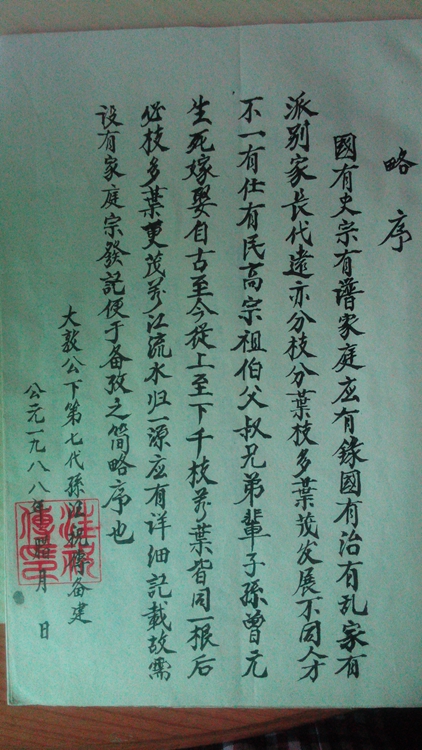 略序
國有史宗有譜家庭应有錄國有治有乱家有
派别家長代遠亦分枝分葉枝多葉茂发展不同人才
不一有仕有民高宗祖伯父叔兄弟輩子孫曾元
生死嫁娶自古至今從上至下千枝万葉皆同一根后
必枝多葉更茂万江流水归一源应有详细記載故需
设有家庭宗發記便于备孜之简略序也
大敦公下第七代孫汪祝傳备建
公元一九八八年 月 日